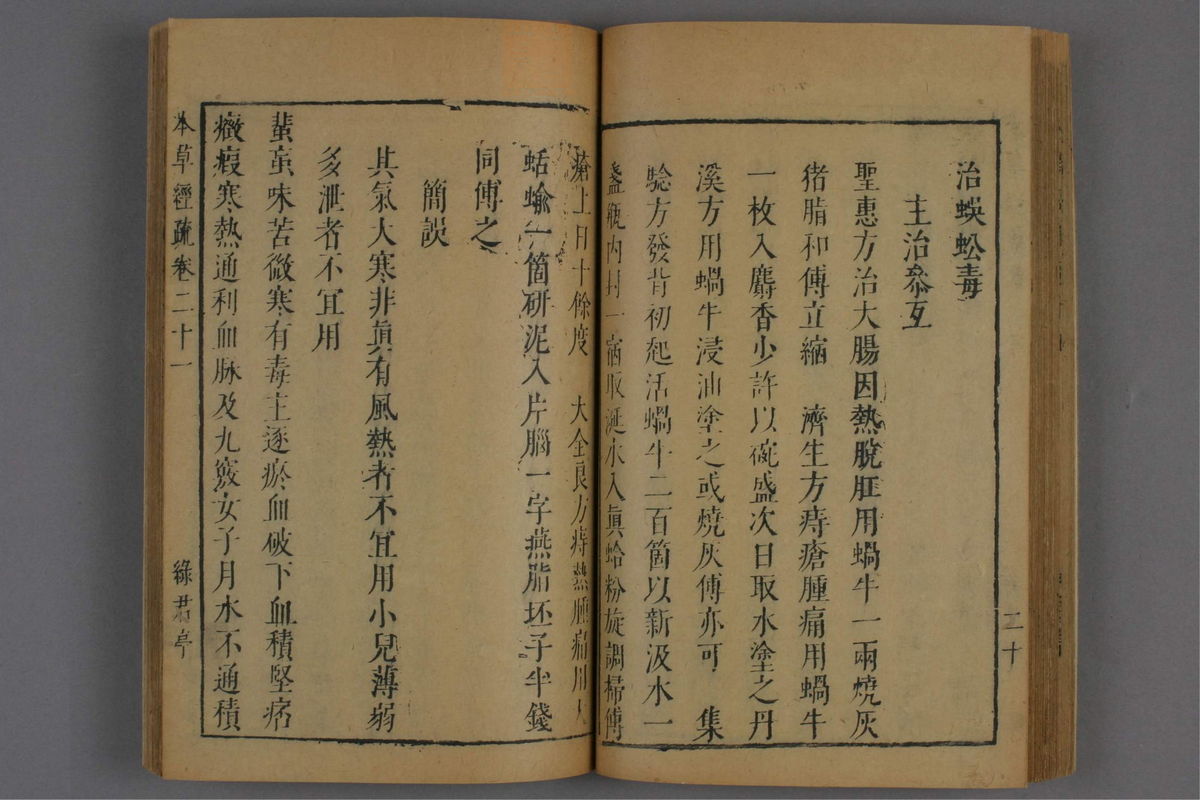 治蜈蚣毒
主治參互
聖惠方治大腸因熱脫肛用蝸牛一兩燒灰
猪脂和傅立縮　濟生方痔瘡腫痛用蝸牛
一枚入麝香少許以碗盛次日取水塗之丹
溪方用蝸牛浸油塗之或燒灰傅亦可　集
驗方發背初起活蝸牛二百箇以新汲水一
盞瓶內封一宿取涎水入眞蛤粉旋調掃傅
瘡上日十餘度　大全良方痔熱腫痛用大
蛞蝓一箇研泥入片腦一字燕脂坯子半錢
同傅之
簡誤
其氣大寒非眞有風熱者不宜用小兒薄弱
多泄者不宜用
蜚蝱味苦微寒有毒主逐瘀血破下血積堅痞
癥瘕寒熱通利血脉及九竅女子月水不通積
本草經疏卷二十一
綠君亭
二十